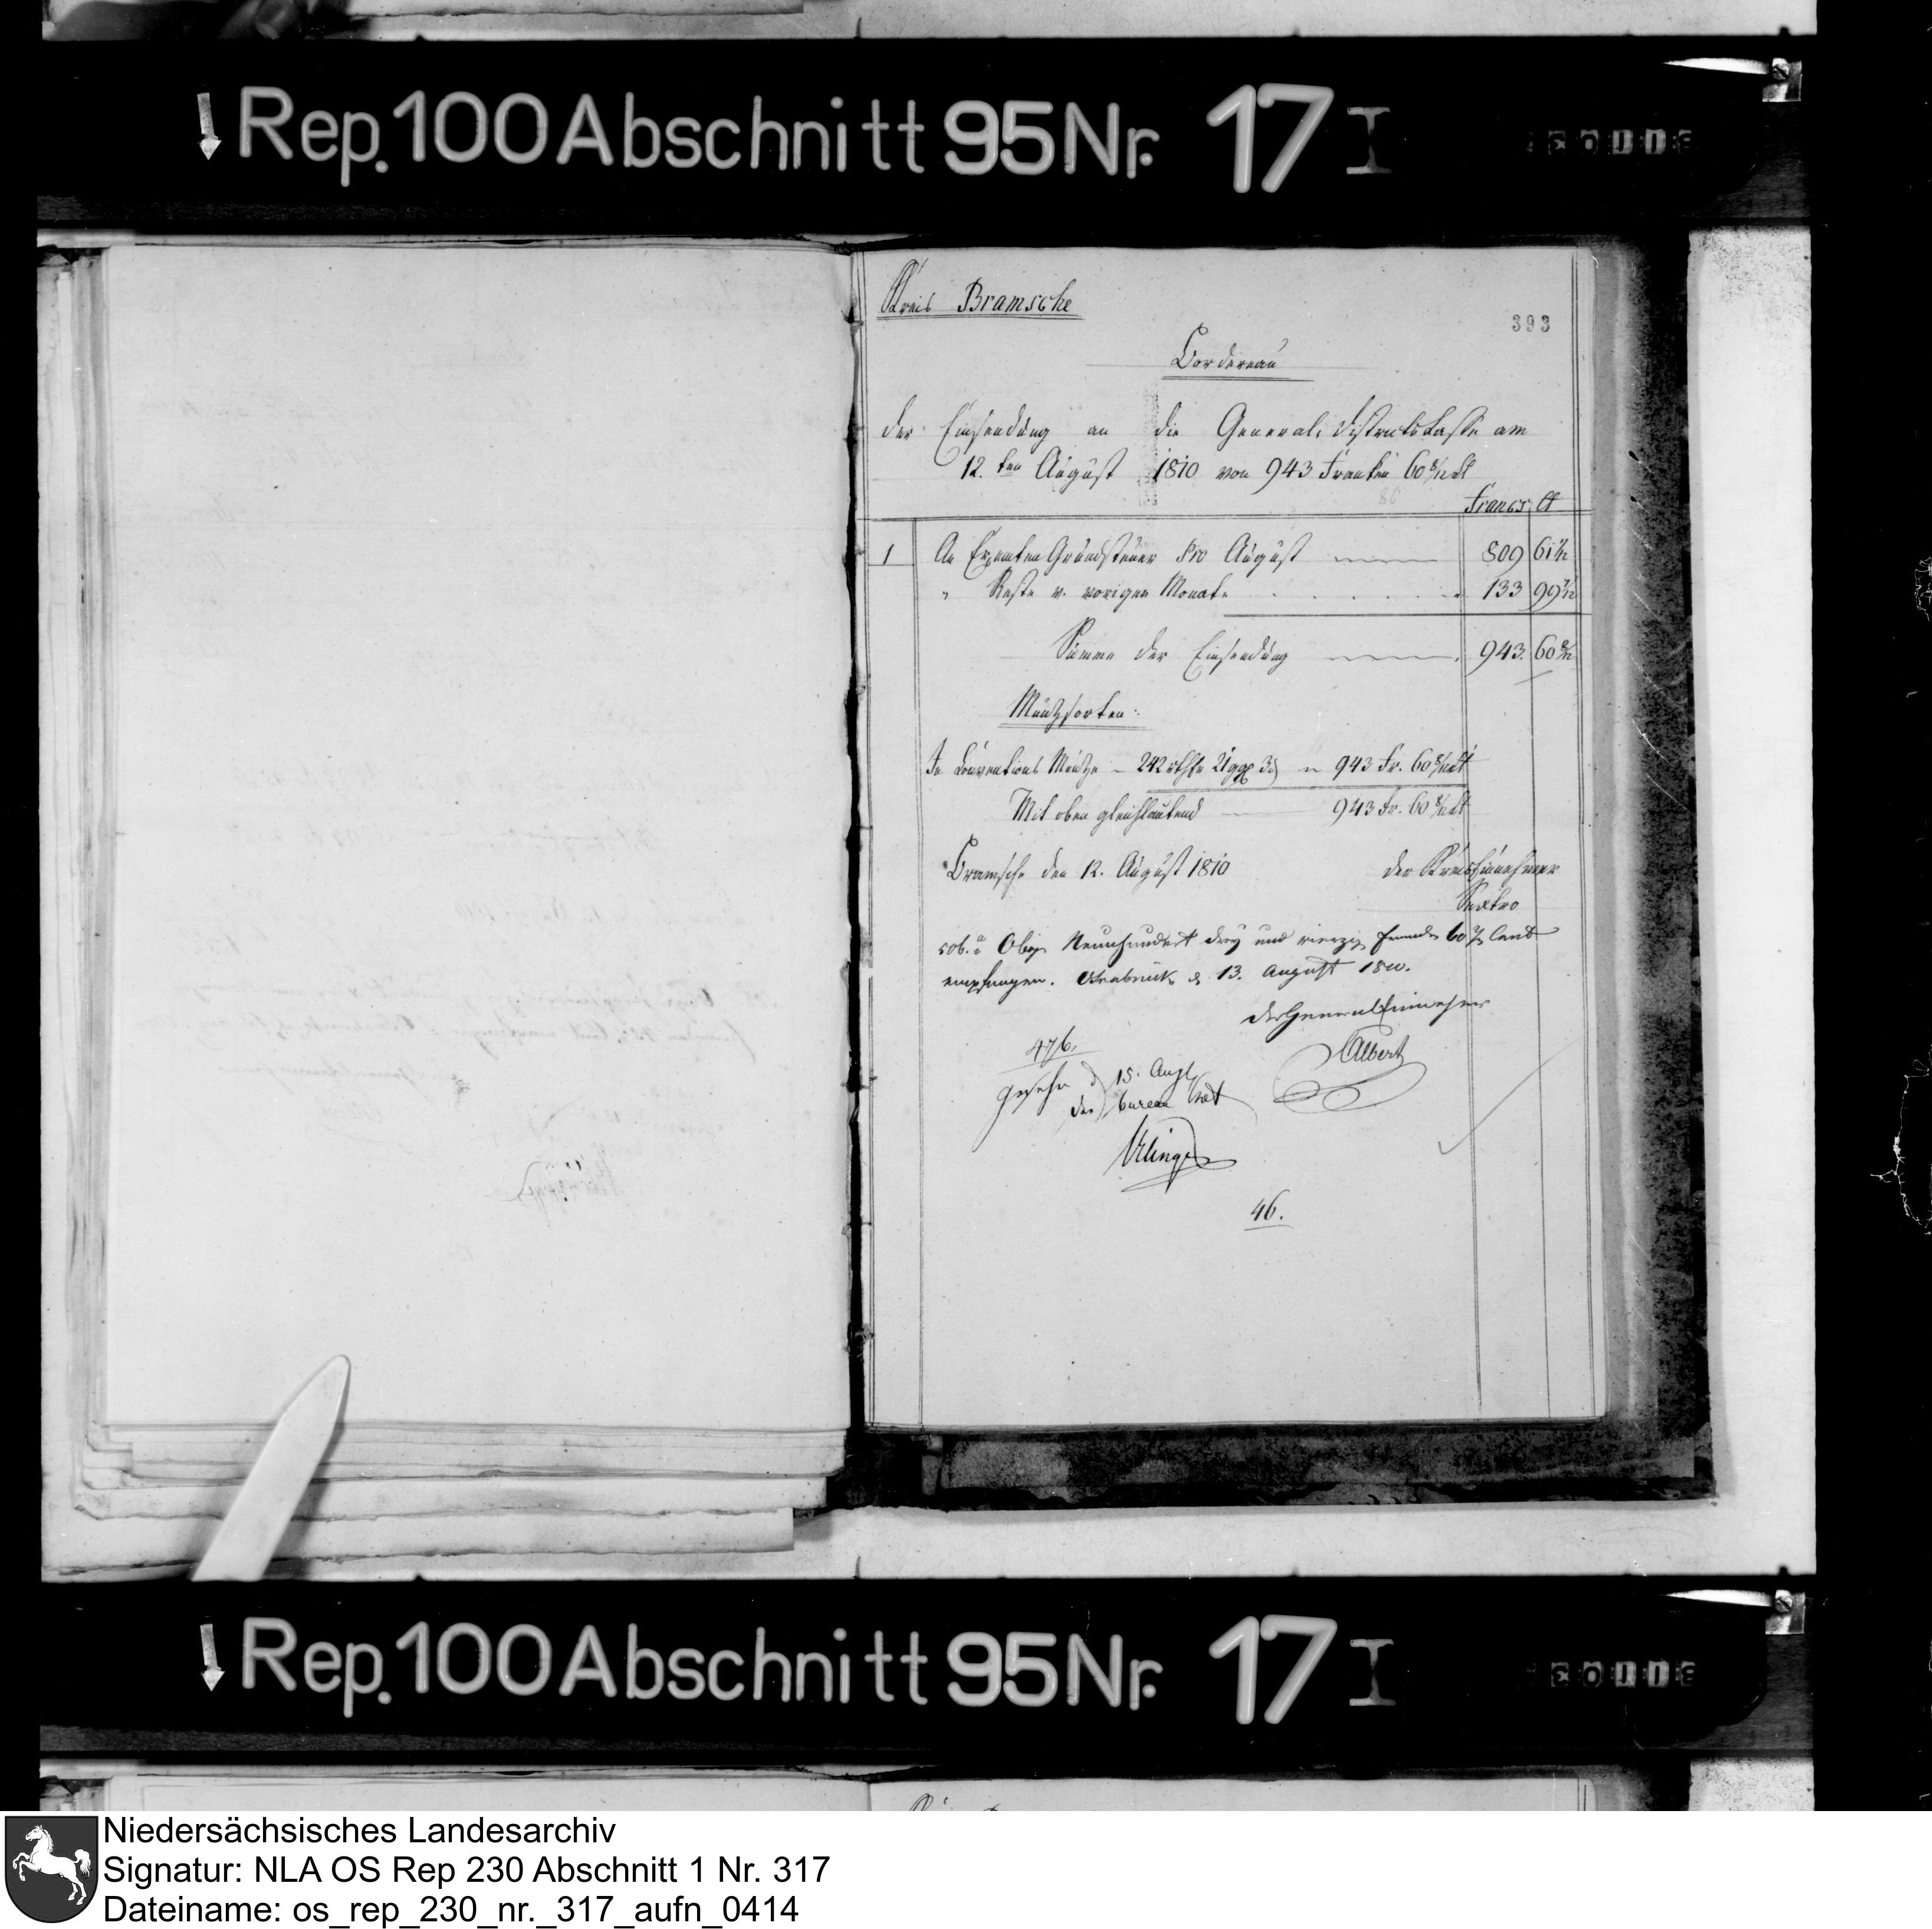 Rep. 100 Abschnitt 95 Nr. 17 I
Kreis Bramsche
393
Bordereau
der Einsendung an die General-Districtskasse am
12.ten August 1810 von 943 Franken 60 8/12 Ct
Francs Ct
1 An Exemten Grundsteuer pro August 809 61 1/12
" Reste v. vorigen Monate 133 99 7/12
Summe der Einsendung 943. 60 8/12
Müntzsorten:
In Conventions Müntze 242 rthlr 21 ggr 3 943 Fr. 60 8/12 Ct
Mit oben gleichlautend 943 Fr. 60 8/12 Ct
Bramsche den 12. August 1810
der Kreiseinnehmer
Sextro
506. Obige Neunhundert drey und vierzig Franks 60 Cent
empfangen. Osnabrück d. 13. August 1810.
der General Einnehmer
Albert
476.
gesehn d 15. Augt
der bureau
46.
Rep. 100 Abschnitt 95 Nr. 17 I
Niedersächsisches Landesarchiv
Signatur: NLA OS Rep 230 Abschnitt 1 Nr. 317
Dateiname: os_rep_230_nr._317_aufn_0414